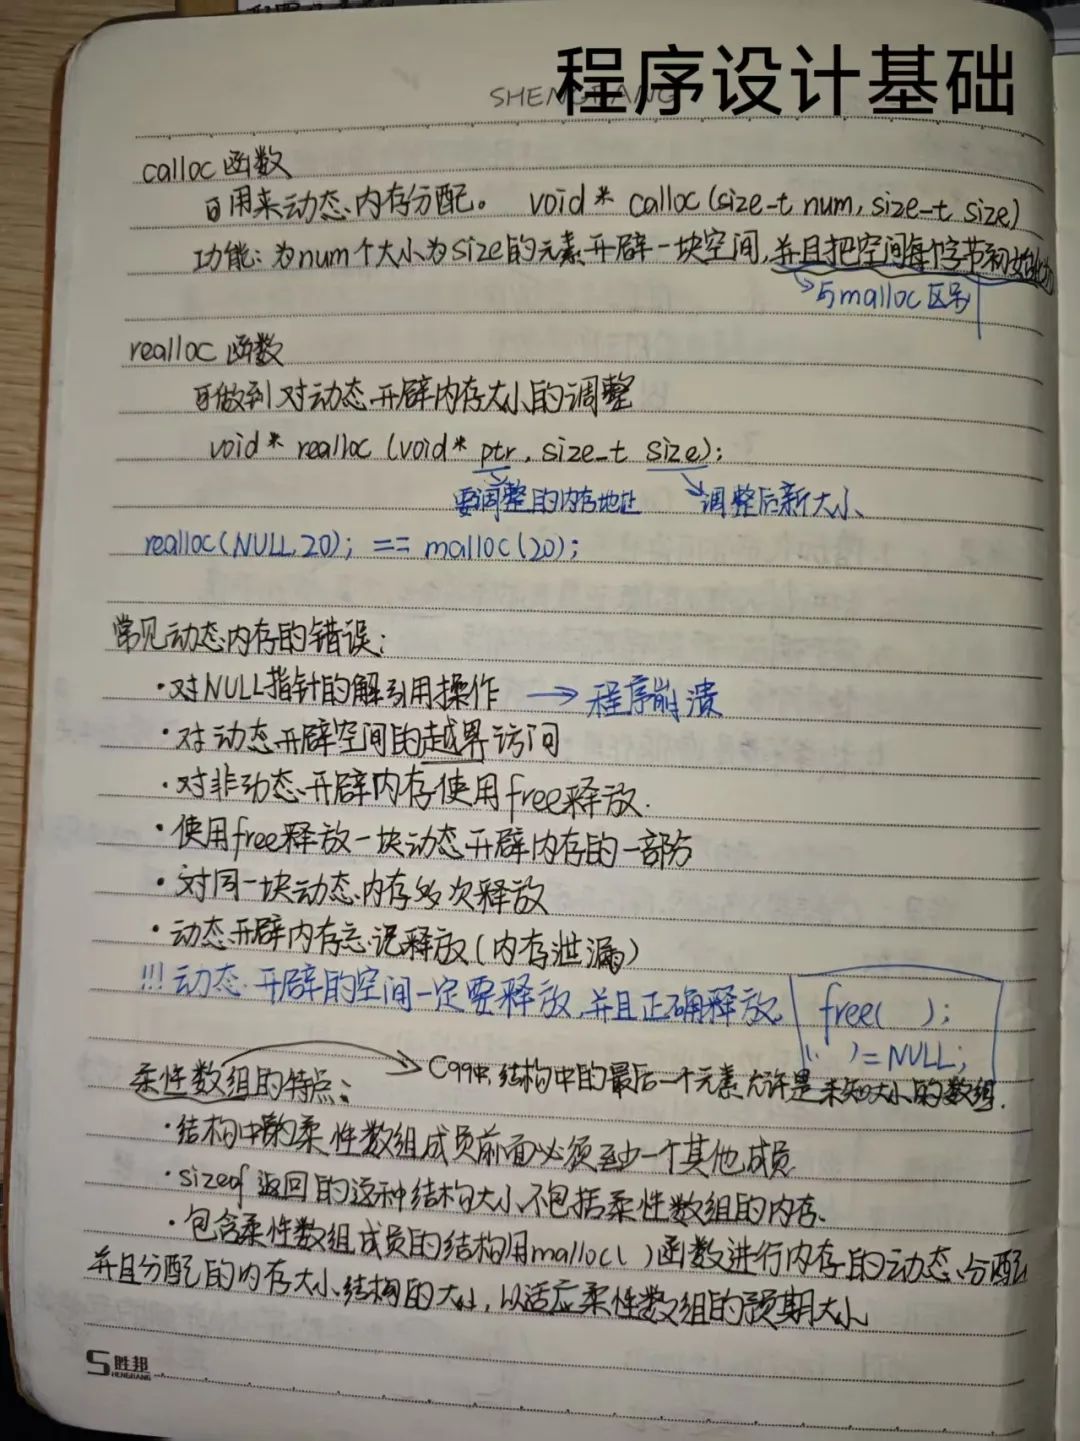 程序设计基础
SHENGBANG
calloc 函数
可用来动态内存分配。 void * calloc (size-t num, size-t size)
功能: 为num个大小为size的元素开辟一块空间,并且把空间每个字节初始化为
与malloc区别
realloc 函数
可做到对动态开辟内存大小的调整
void * realloc (void* ptr, size_t size);
要调整的内存地址 调整后新大小
realloc(NULL,20); == malloc(20);
常见动态内存的错误:
·对NULL指针的解引用操作 → 程序崩溃
·对动态开辟空间的越界访问
·对非动态开辟内存使用free释放.
·使用free释放一块动态开辟内存的一部分
·对同一块动态内存多次释放
·动态开辟内存忘记释放(内存泄漏)
!!!动态开辟的空间一定要释放,并且正确释放. free( );
( )=NULL;
柔性数组的特点: → C99中,结构中的最后一个元素允许是未知大小的数组.
·结构中的柔性数组成员前面必须至少一个其他成员
·sizeof 返回的这种结构大小不包括柔性数组的内存.
·包含柔性数组成员的结构用malloc( )函数进行内存的动态分配
并且分配的内存大小结构的大小,以适应柔性数组的预期大小
胜邦
SHENGBANG